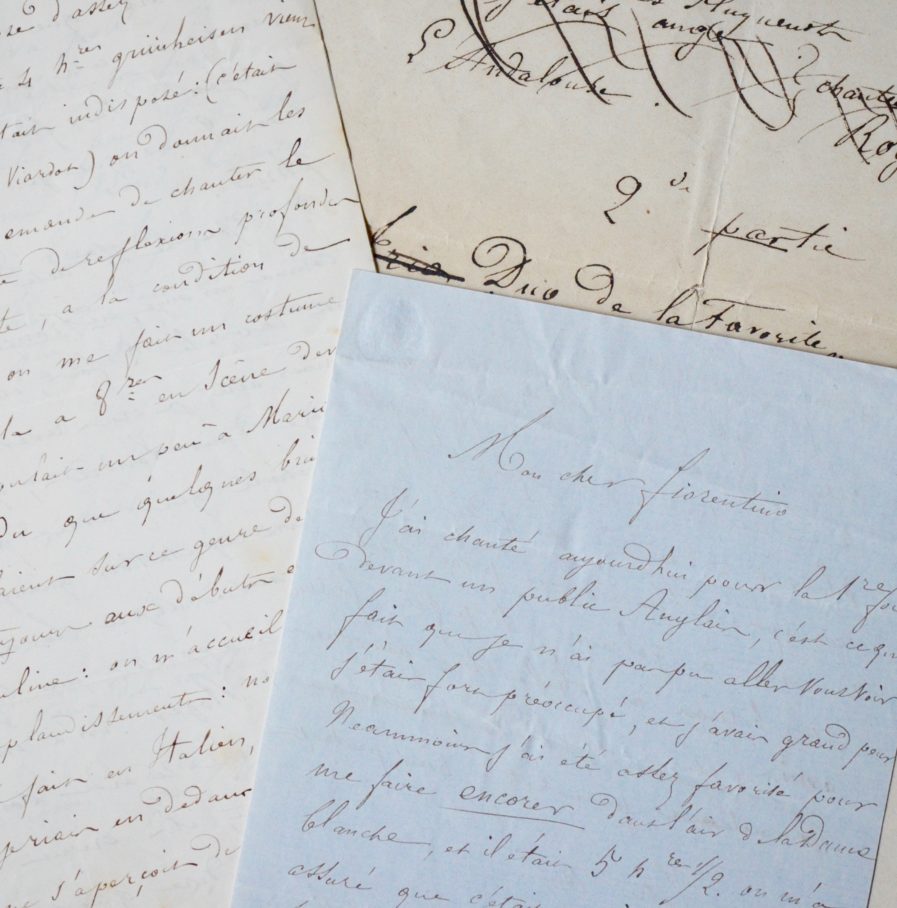 4 hres gruinheisen vien
tait indisposé: (c'était
Viardot) on donnait les
emande de chanter le
de reflexions profondes
te, a la condition de
on me fait un costume
la a 8 res en Scène der
un peu a Mario
Du que quelques bri
aient sur ce genre de
jours aux débuts e
uline: on m'accueil
plaudissements: no
fait en Italien,
priais en dedans
s'aperçoit de
Huguenots
sans angle
L'Andalouse.
chanté
Rog
2.de partie
trio Duo de la Favorite
Mon cher fiorentino
J'ai chanté aujourdhui pour la 1re foi
devant un public Anglais, c'est ce qui
fait que je n'ai pas pu aller vous voir
j'étais fort préoccupé, et j'avais grand peur
Neammoins j'ai été assez favorisé pour
me faire encorer dans l'air d laDame
blanche, et il était 5 h re 1/2. on m'a
assuré que c'était